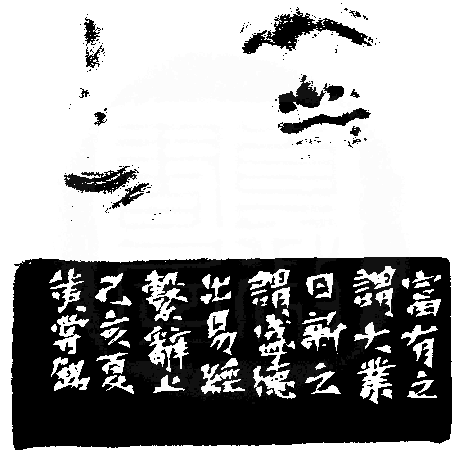 富有之
謂大業
日新之
謂盛德
出易經
繫辭上
己亥夏
黃嘗銘